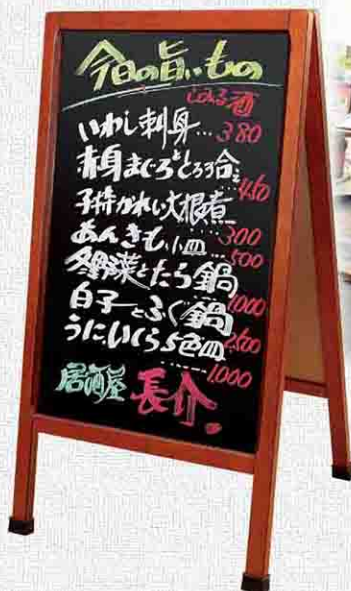 今日の旨いもの
しみる酒
いわし刺身…380
赤身まぐろとろろ合え
…450
子持かれい大根煮
…300
あんきも小皿…500
冬野菜とたら鍋
1000
白子とふぐ鍋
2500
うにいくら5色皿
…1000
居酒屋 長介